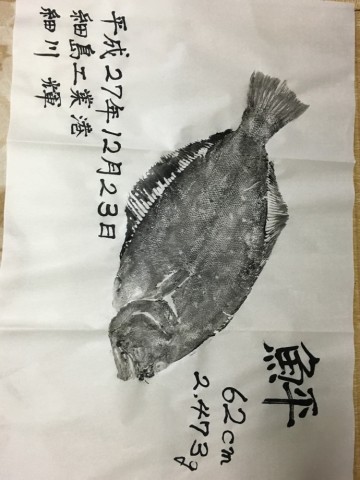 鮃
62cm
2.473g
平成27年12月23日
細島工業港
細川 輝